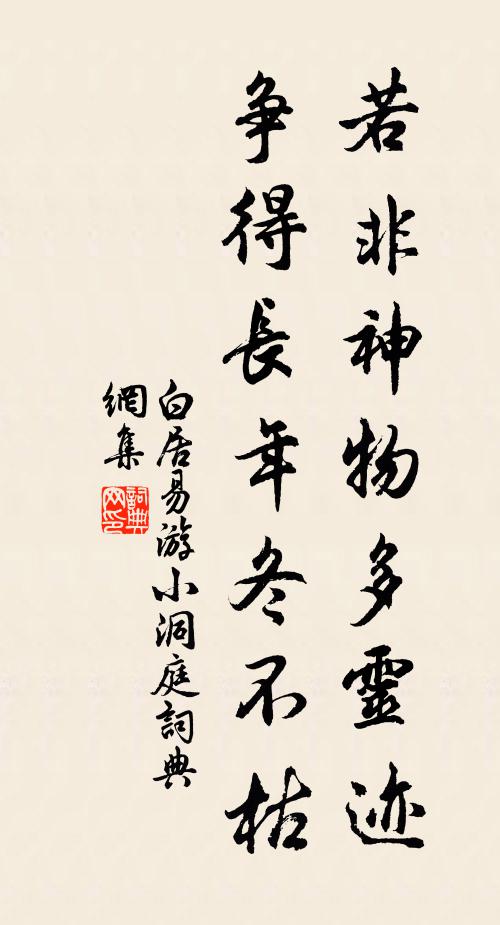 若非神物多靈迹
争得長年冬不枯
白居易游小洞庭詞典
網集
詞典网印